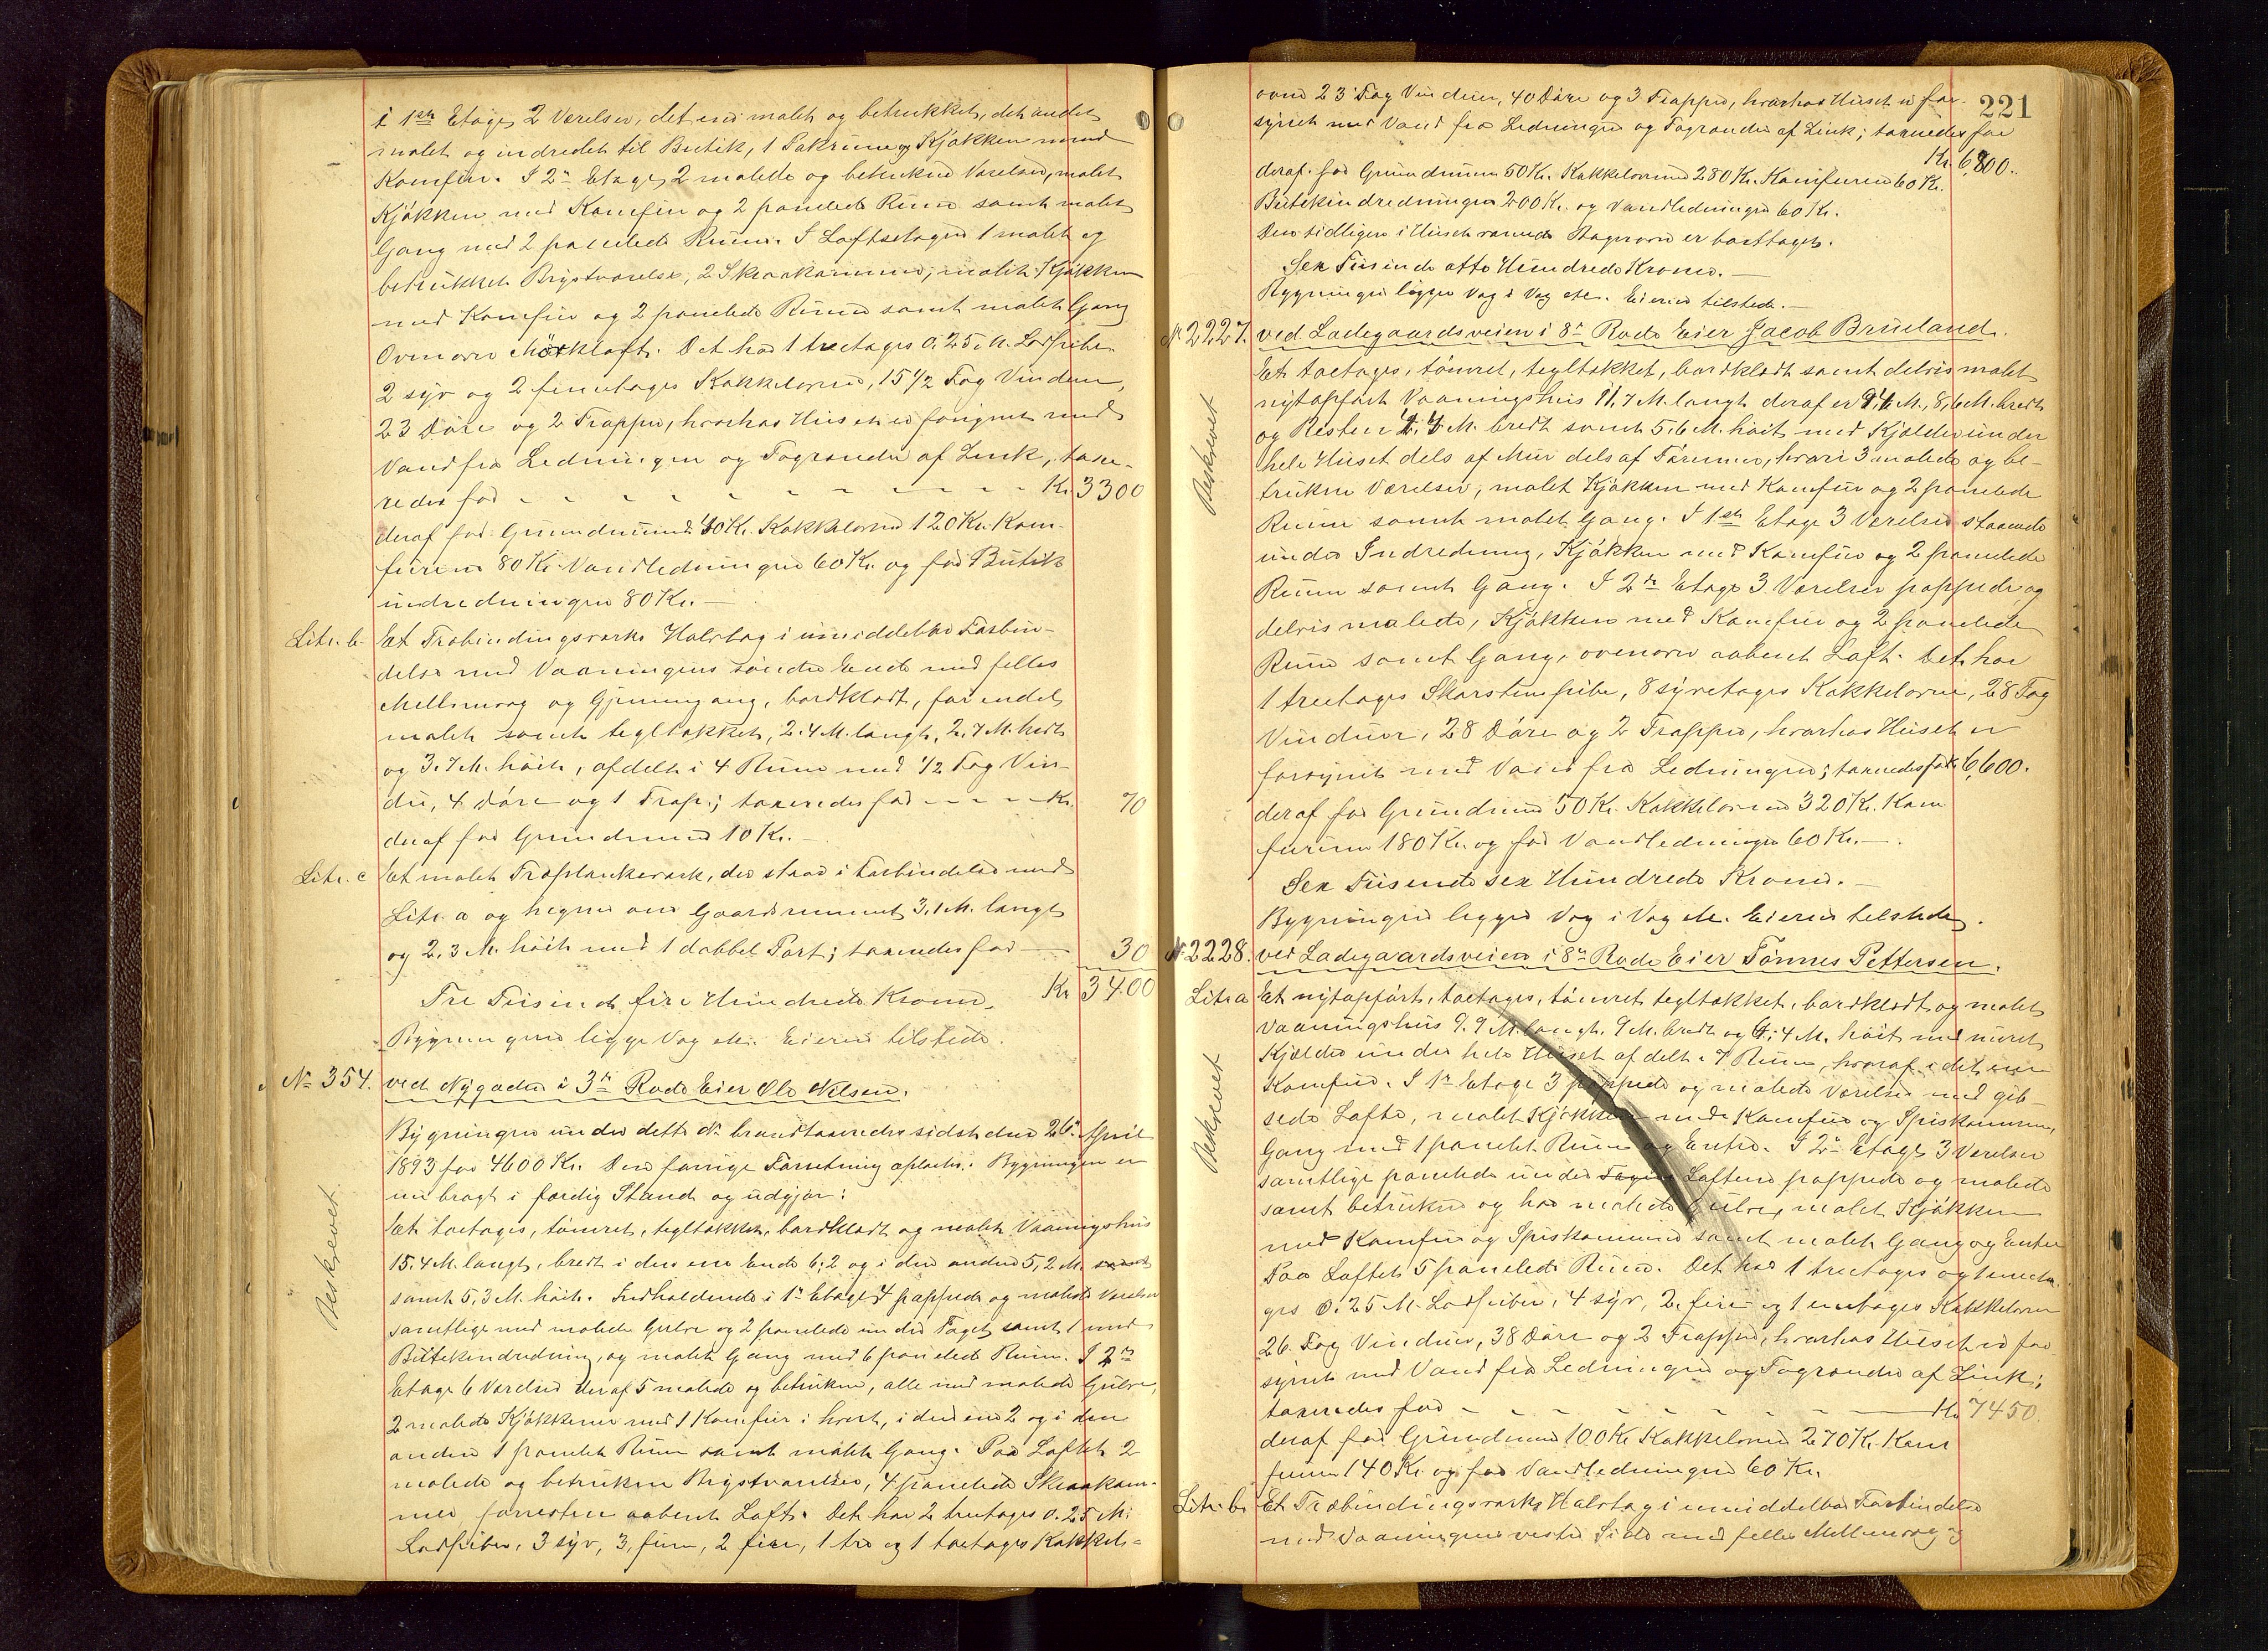 i 1ste Etage 2 Værelser, det ene malet og betrukket, det andet
malet og indredet til Butik, 1 Pakrum og Kjøkken med
Komfur. I 2n Etage 2 malede og betrukne Værelser, malet
Kjøkken med Komfur og 2 panelede Rum samt malet
Gang med 2 panelede Rum. I Loftsetagen 1 malet og
betrukket Brystværelse, 2 Skraakammer, malet Kjøkken
med Komfur og 2 panelede Rum samt malet Gang
Ovenover Mørkloft. Det har 1 treetages 0.25 M. Lodpibe
2 syv og 2 femetages Kakkelovne, 15 1/2 Fag Vinduer,
23 Døre og 2 Trapper, hvorhos Huset er forsynet med
Vand fra Ledningen og Tagrender af Zink, taxe-
redes for - - - - - - - - - Kr. 3300
deraf for Grundmuren 40 Kr. Kakkelovne 120 Kr. Kom-
furerne 80 Kr. Vandledningen 60 Kr. og for Butik
indredningen 80 Kr. —
Litr. b Et Træbindingsværks Halvtag i umiddelbar Forbin-
delse med Vaaningens søndre Ende med fælles
Mellemvæg og Gjennemgang, bordklædt, for en del
malet samt tegltækket, 2.4 M. langt, 2.7 M. bredt
og 3.7 M. høit, afdelt i 4 Rum med 1/2 Fag Vin-
du, 4 Døre og 1 Trap; taxeredes for - - - Kr. 70
deraf for Grundmur 10 Kr. —
Litr. c Et malet Træplankeværk, der staar i Forbindelse med
Litr. a og hegner om Gaardsrummet 3.1 M. langt
og 2.3 M. høit med 1 dobbel Port; taxeredes for — 30
Tre Tusinde fire Hundrede Kroner. Kr 3400
Bygningerne ligge Væg etc. Eieren tilstede.
No 354. ved Nygaden i 3die Rode Eier Ole Nilsen.
Bygningen under dette No branntaxeredes sidst den 26de April
1893 for 4600 Kr. Den forrige Forretning oplæstes. Bygningen er
nu bragt i færdig Stand og udgjør:
Et toetages, tømret, tegltækket, bordklædt og malet Vaaningshus
15.4 M. langt, bredt i den ene Ende 6.2 og i den anden 5,2 M.
samt 5,3 M. høit. Indholdende i 1ste Etage 4 pappede og malede Værelser
samtlige med malede Gulve og 2 panelede under Taget samt 1 med
Butikindredning, og malet Gang med 6 panelede Rum. I 2den
Etage 6 Værelser deraf 5 malede og betrukne, alle med malede Gulve,
2 malede Kjøkkener med 1 Komfur i hvert, i den ene 2 og i den
anden 1 panelet Rum samt malet Gang. Paa Loftet 2
malede og betrukne Brystværelser, 4 panelede Skraakam-
mer forresten aabent Loft. Det har 2 treetages 0.25 M.
Lodpiber, 3 syv, 3 fem, 2 fire, 1 tre og 1 toetages Kakkel-
Beskrevet
221
ovne 23 Fag Vinduer, 40 Døre og 3 Trapper, hvorhos Huset er for-
synet med Vand fra Ledningen og Tagrender af Zink; taxeredes for
Kr. 6,800.
deraf for Grundmuren 50 Kr. Kakkelovnene 280 Kr. Komfurene 60 Kr.
Butikindredningen 200 Kr. og Vandledningen 60 Kr.
Den tidligere i Huset værende Bagerovn er borttaget.
Sex Tusinde otte Hundrede Kroner. —
Bygningen ligger Væg i Væg etc. Eieren tilstede. —
No 2227. ved Ladegaardsveien i 8de Rode Eier Jacob Brueland.
Et toetages, tømret, tegltækket, bordklædt samt delvis malet
nyopført Vaaningshus 11,7 M. langt deraf er M., 8,6 M. bredt
og Resten M. bredt samt 5.6 M. høit med Kjælder under
hele Huset dels af Mur dels af Tømmer, hvori 3 malede og be-
trukne Værelser, malet Kjøkken med Komfur og 2 panelede
Rum samt malet Gang. I 1ste Etage 3 Værelser staaende
under Indredning, Kjøkken med Komfur og 2 panelede
Rum samt Gang. I 2den Etage 3 Værelser pappede og
delvis malede, Kjøkken med Komfur og 2 panelede
Rum samt Gang, ovenover aabent Loft. Det har
1 treetages Skorstenspibe, 8 syvetages Kakkelovne, 28 Fag
Vinduer, 28 Døre og 2 Trapper, hvorhos Huset er
forsynet med Vand fra Ledningen; taxeredes for Kr. 6,600.
deraf for Grundmur 50 Kr. Kakkelovne 320 Kr. Kom
furerne 180 Kr. og for Vandledningen 60 Kr. —
Sex Tusinde sex Hundrede Kroner. —
Bygningen ligger Væg i Væg etc. Eieren tilstede.
Beskrevet
No 2228. ved Ladegaardsveien i 8de Rode Eier Tønnes Pettersen.
Litr. a Et nyopført, toetages, tømret, tegltækket, bordklædt og malet
Vaaningshus 9.9 M. langt, 9 M. bredt og 6.4 M. høit med muret
Kjælder under hele Huset afdelt i 7 Rum, hvoraf i det ene
Komfur. I 1ste Etage 3 pappede og malede Værelser med gib-
sede Lofte, malet Kjøkken med Komfur og Spiskammer,
Gang med 1 panelet Rum og Entre. I 2den Etage 3 Værelser
samtlige panelede under Loftene pappede og malede
samt betrukne og har malede Gulve, malet Kjøkken
med Komfur og Spiskammer samt malet Gang og Entre
Paa Loftet 5 panelede Rum. Det har 1 treetages og 1 eneta-
ges 0.25 M. Lodpiber, 4 syv, 2 fire og 1 enetages Kakkelovn
26 Fag Vinduer, 38 Døre og 2 Trapper, hvorhos Huset er for
synet med Vand fra Ledningen og Tagrender af Zink;
taxeredes for - - - - - - - - Kr 7450.
deraf for Grundmur 100 Kr. Kakkelovne 270 Kr. Kom
furene 140 Kr. og for Vandledningen 60 Kr.
Litr. b. Et Træbindingsværks Halvtag i umiddelbar Forbindelse
med Vaaningens vestre Side med fælles Mellemvæg og
Beskrevet